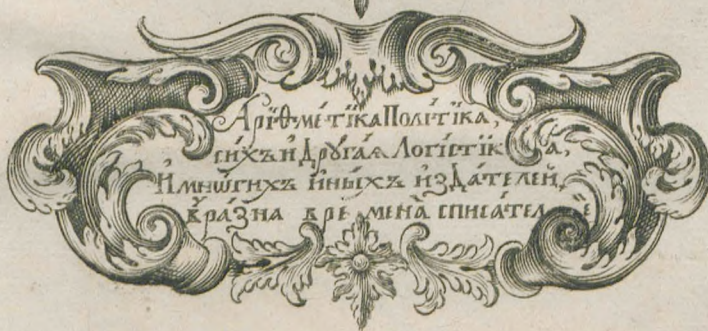 Аріѳме́тїка Полі́тїка,
си́хъ и̂ Дрꙋга́ѧ Логі́стїка,
И҆ мнѡ́гихъ и҆ны́хъ и҆зДа́телей,
в̾ ра́зна времена̀ списа́телей